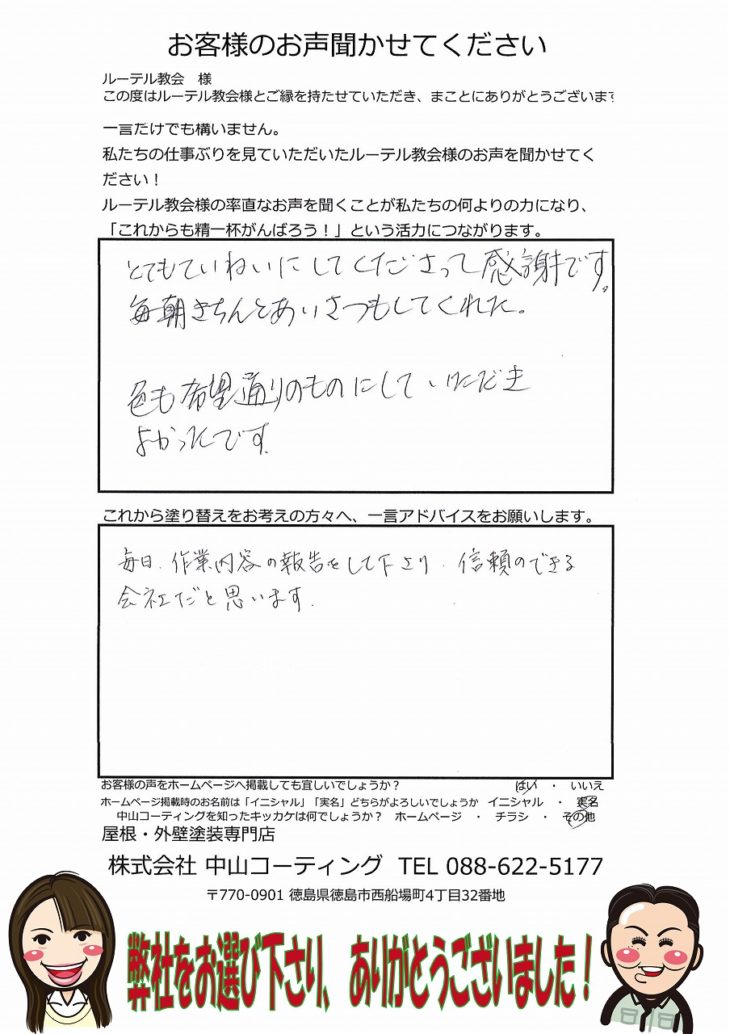 お客様のお声聞かせてください
ルーテル教会　様
この度はルーテル教会様とご縁を持たせていただき、まことにありがとうございます
一言だけでも構いません。
私たちの仕事ぶりを見ていただいたルーテル教会様のお声を聞かせてく
ださい！
ルーテル教会様の率直なお声を聞くことが私たちの何よりの力になり、
「これからも精一杯がんばろう！」という活力につながります。
とてもていねいにしてくださって感謝です。
毎朝きちんとあいさつもしてくれた。
色も希望通りのものにしていただき
よかったです
これから塗り替えをお考えの方々へ、一言アドバイスをお願いします。
毎日、作業内容の報告をして下さり、信頼のできる
会社だと思います.
お客様の声をホームページへ掲載しても宜しいでしょうか？　はい　・　いいえ
ホームページ掲載時のお名前は「イニシャル」「実名」どちらがよろしいでしょうか　イニシャル　・　実名
中山コーティングを知ったキッカケは何でしょうか？　ホームページ　・　チラシ　・　その他
屋根・外壁塗装専門店
株式会社 中山コーティング　TEL 088-622-5177
〒770-0901 徳島県徳島市西船場町4丁目32番地
弊社をお選び下さり、ありがとうございました！